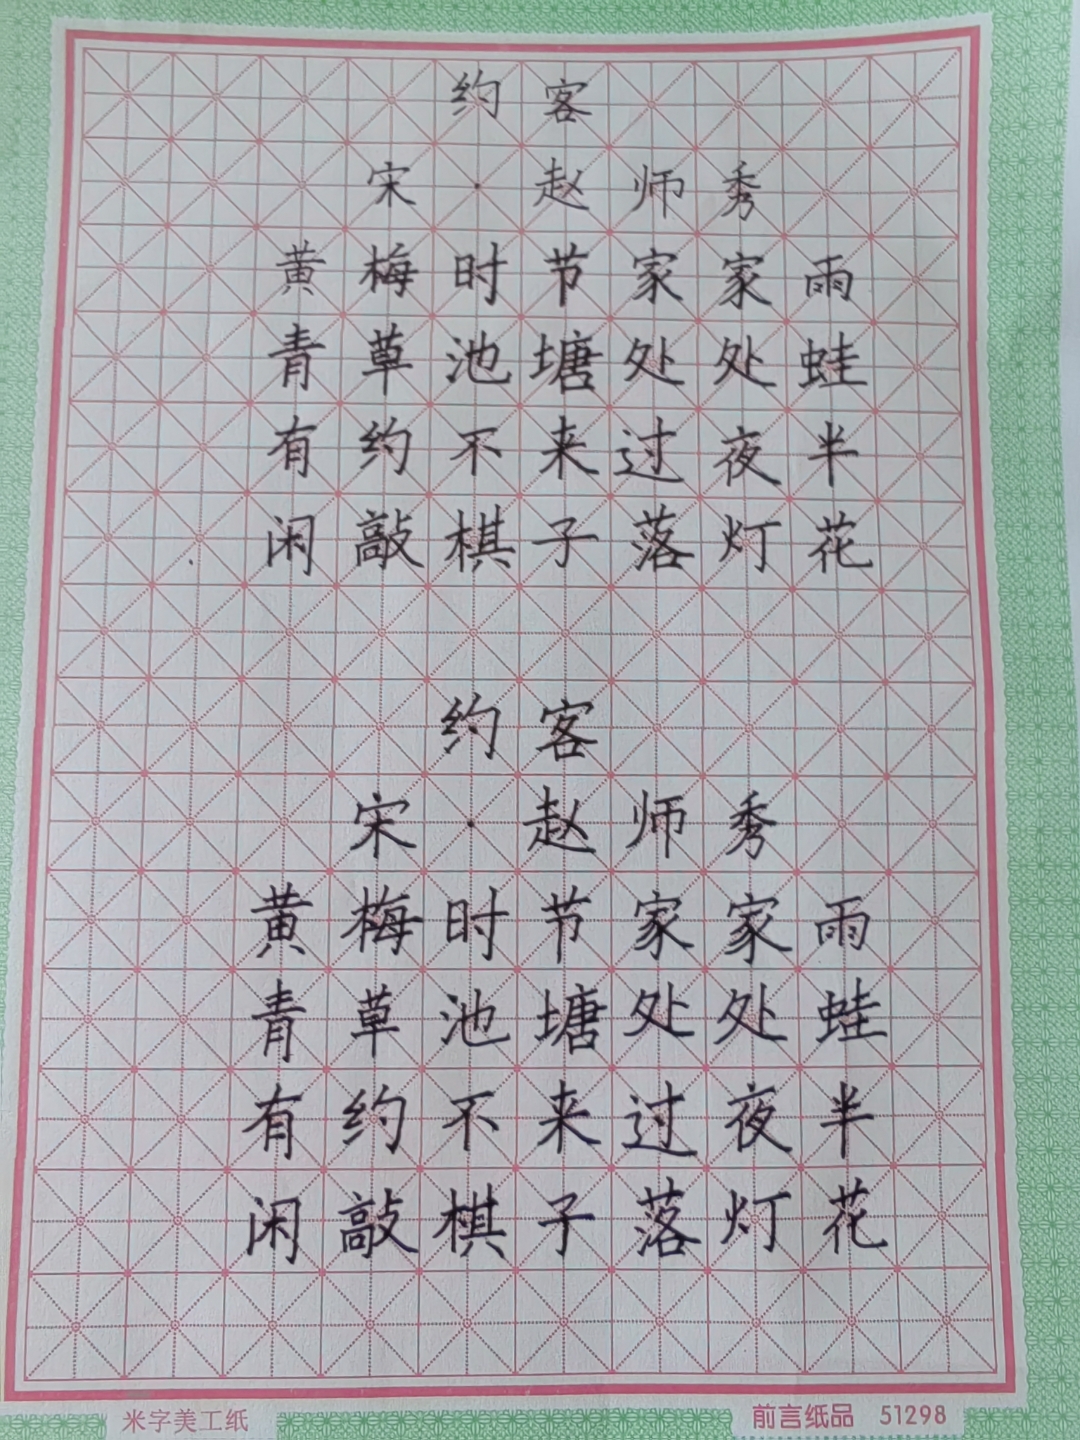 约客
宋·赵师秀
黄梅时节家家雨
青草池塘处处蛙
有约不来过夜半
闲敲棋子落灯花
约客
宋·赵师秀
黄梅时节家家雨
青草池塘处处蛙
有约不来过夜半
闲敲棋子落灯花
米字美工纸
前言纸品 51298